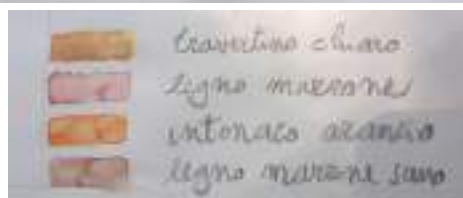 travertino chiaro
legno marrone
intonaco arancio
legno marone